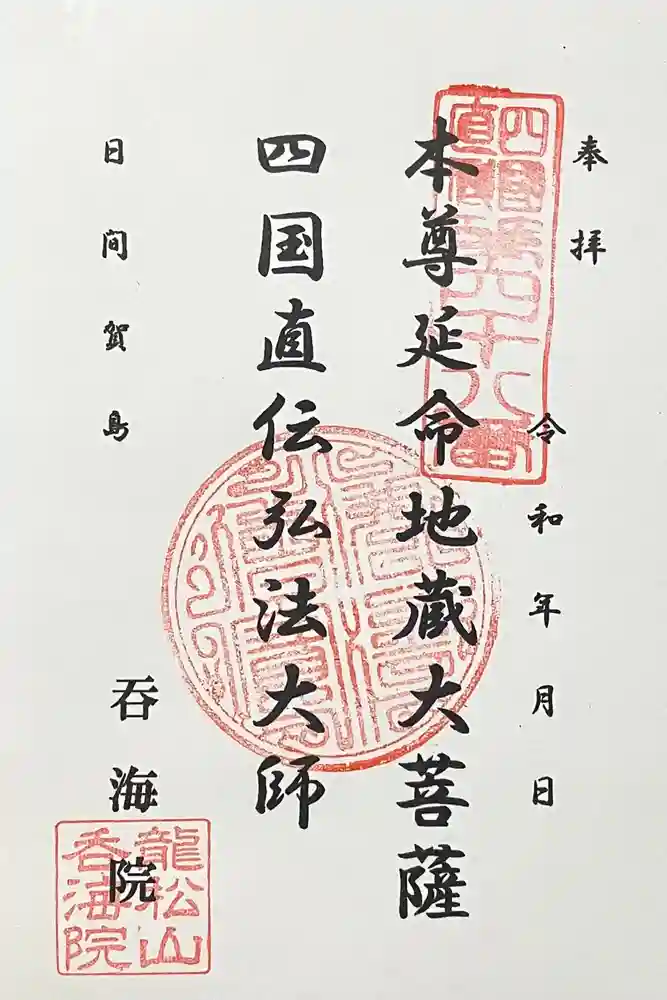 奉拝
令和年月日
四國第六十八番
直傳
本尊延命地蔵大菩薩
四国直伝弘法大師
日間賀島
吞海院
龍松山
吞海院